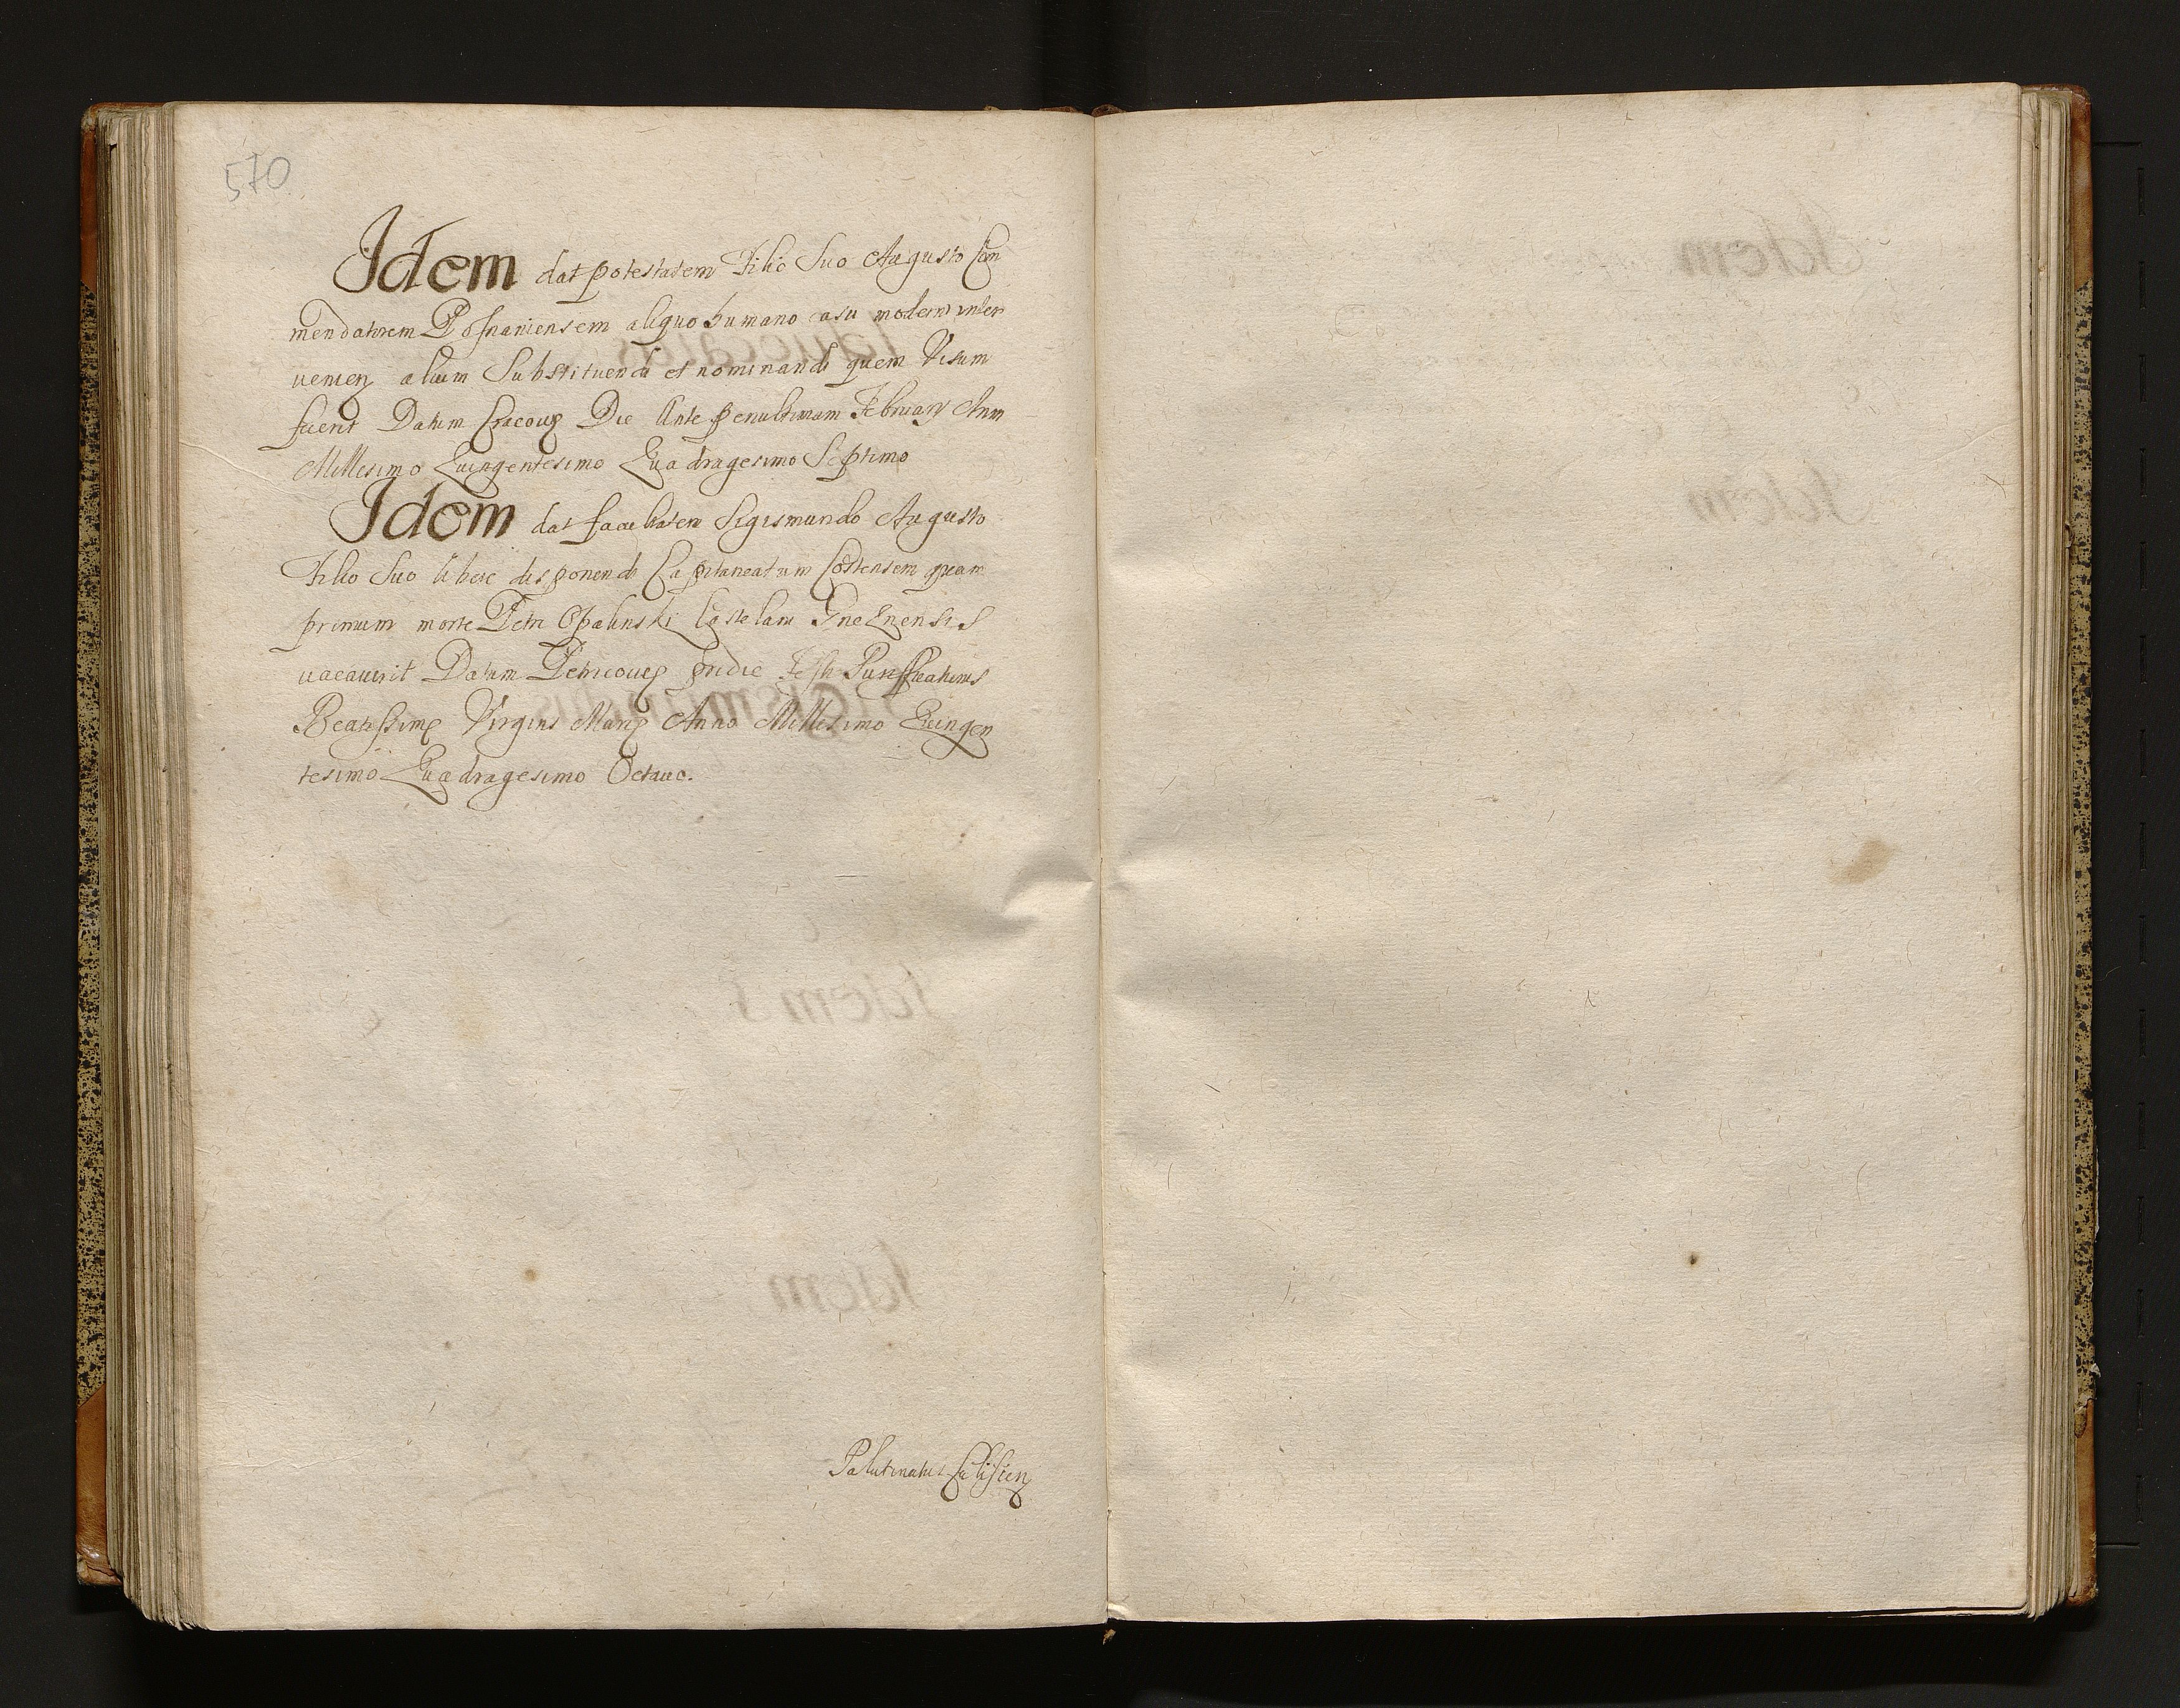 570
Idem dat potestatem Filio Suo Augusto Com
mendatorem Posnaniensem aliquo humano casu moderni inter
ueniens alium Substituendi et nominandi quem Visum
fuerit Datum Cracouię Die Ante penultimam Februarÿ Anno
Millesimo Quingentesimo Quadragesimo Septimo
Idem dat facultatem Sigismundo Augusto
Filio Suo libere disponendi Capitaneatum Costensem quam
primum morte Petri Opalinski Castelani Gneznensis
uacauerit Datum Petricouię pridie Festi Puriffieationis
Beatissimę Virginis Marię Anno Millesimo Quingen
tesimo Quadragesimo Octauo.
Palatinatus Calisien